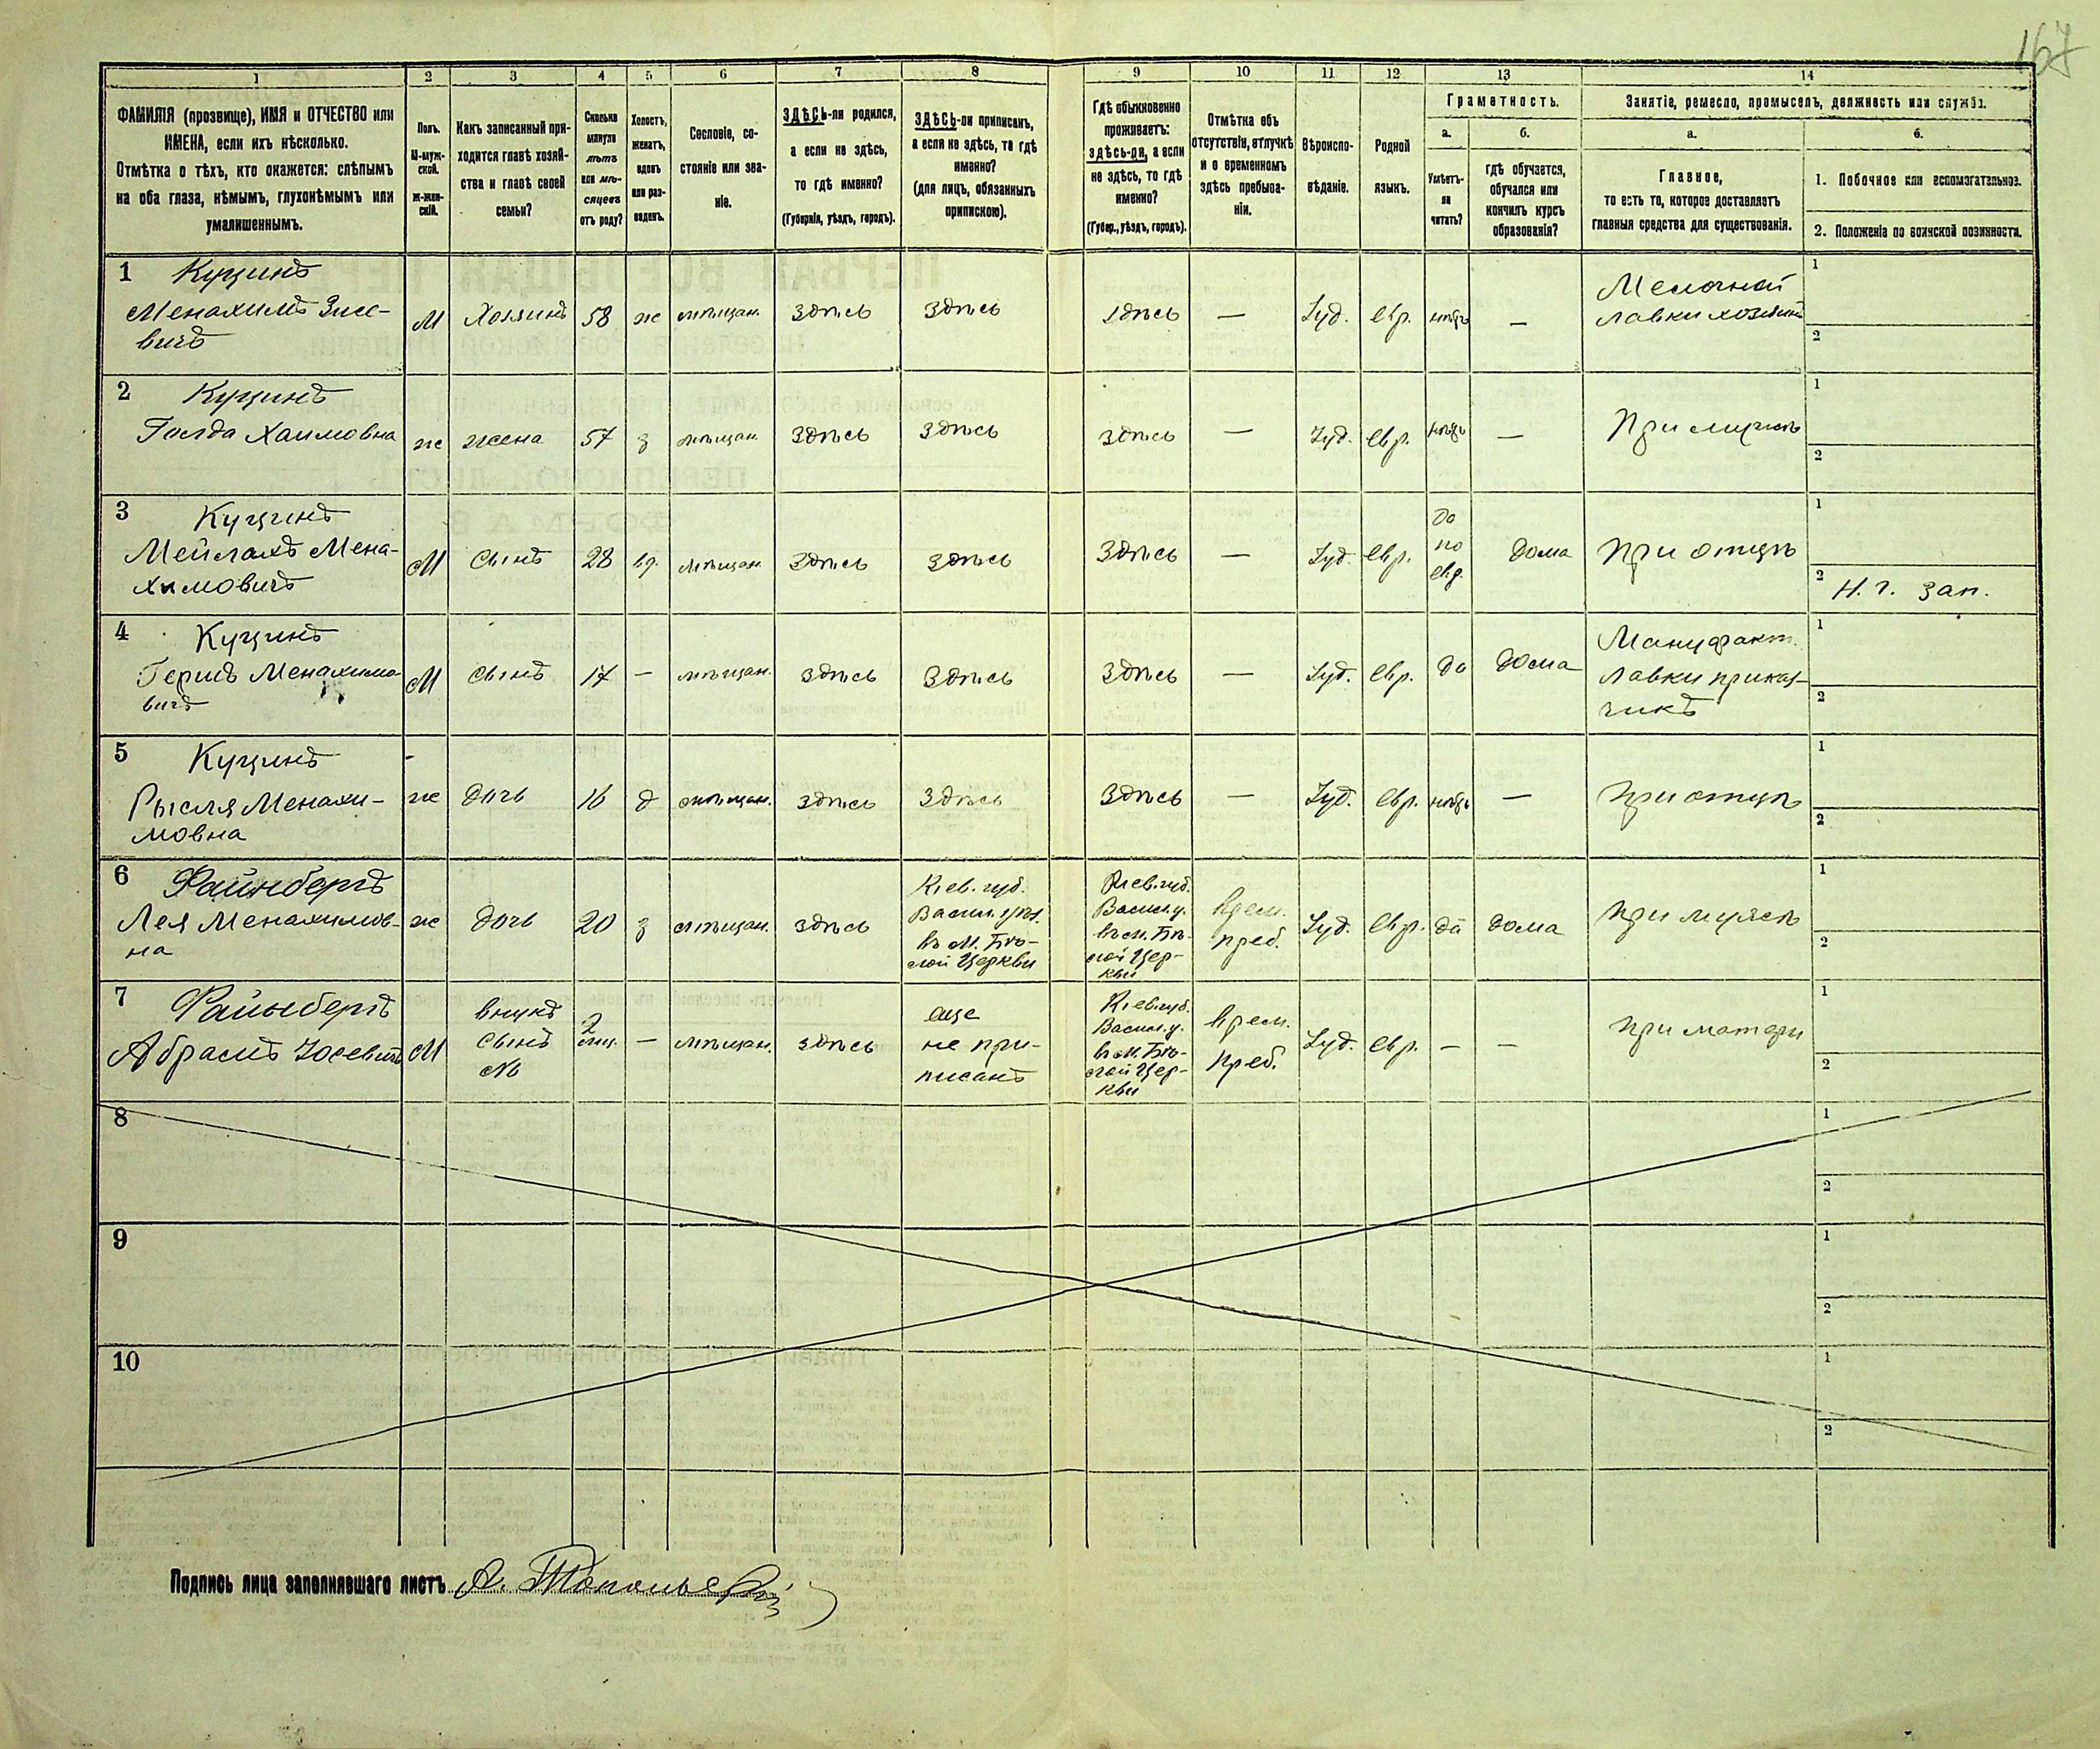 167
1 2 3 4 5 6 7 8 9 10 11 12 13 14
ФАМИЛІЯ (прозвище), ИМЯ и ОТЧЕСТВО или
ИМЕНА, если ихъ нѣсколько.
Отмѣтка о тѣхъ, кто окажется: слѣпымъ
на оба глаза, нѣмымъ, глухонѣмымъ или
умалишеннымъ.
Полъ.
М-муж-
ской.
Ж-жен-
скій.
Какъ записанный при-
ходится главѣ хозяй-
ства и главѣ своей
семьи?
Сколько
минуло
лѣтъ
или мѣ-
сяцевъ
отъ роду?
Холостъ,
женатъ,
вдовъ
или раз-
веденъ.
Сословіе, со-
стояніе или зва-
ніе.
ЗДѢСЬ-ли родился,
а если не здѣсь,
то гдѣ именно?
(Губернія, уѣздъ, городъ).
ЗДѢСЬ-ли приписанъ,
а если не здѣсь, то гдѣ
именно?
(для лицъ, обязанныхъ
припискою).
Гдѣ обыкновенно
проживаетъ:
здѣсь-ли, а если
не здѣсь, то гдѣ
именно?
(Губер., уѣздъ, городъ).
Отмѣтка объ
отсутствіи, отлучкѣ
и о временномъ
здѣсь пребыва-
ніи.
Вѣроиспо-
вѣданіе.
Родной
языкъ.
Грамотность.
а.
Умѣетъ-
ли
читать?
б.
гдѣ обучается,
обучался или
кончилъ курсъ
образованія?
Занятіе, ремесло, промыселъ, должность или служба.
а.
Главное,
то есть то, которое доставляетъ
главныя средства для существованія.
б.
1. Побочное или вспомогательное.
2. Положеніе по воинской повинности.
1 Куцинъ
Менахимъ Зисе-
вичъ
М Хозяинъ 58 ж мѣщан. Здѣсь Здѣсь здѣсь — Іуд. евр. нѣтъ —
Мелочной
лавки хозяинъ
1
2
2 Куцинъ
Голда Хаимовна ж жена 57 з мѣщан. Здѣсь Здѣсь здѣсь — Іуд. евр. нѣтъ — При мужѣ
1
2
3 Куцинъ
Мейлахъ Мена-
химовичъ
М Сынъ 28 вд. мѣщан. Здѣсь Здѣсь Здѣсь — Іуд. евр.
да
по
евр.
дома При отцѣ
1
2 Н. г. зап.
4 Куцинъ
Гершъ Менахимо-
вичъ
М Сынъ 17 — мѣщан. Здѣсь Здѣсь Здѣсь — Іуд. евр. да дома
Мануфакт.
лавки приказ-
чикъ
1
2
5 Куцинъ
Рысля Менахи-
мовна
ж дочь 16 д мѣщан. здѣсь Здѣсь Здѣсь — Іуд. евр. нѣтъ — при отцѣ
1
2
6 Файнбергъ
Лея Менахимов-
на
ж дочь 20 з мѣщан. здѣсь
Кіев. губ.
въ м. Бѣ-
лой Церкви
Кіев. губ.
Васил. у.
въ м. Бѣ-
лой Цер-
кви
врем.
преб.
Іуд. евр. да дома при мужѣ
1
2
7 Файнбергъ
Абрамъ Іосевичъ М
внукъ
сынъ
2
— мѣщан. здѣсь
еще
не при-
писанъ
Кіев. губ.
Васил. у.
въ м. Бѣ-
лой Цер-
кви
врем.
преб.
Іуд. евр. — — при матери
1
2
8
1
2
9
1
2
10
1
2
Подпись лица заполнявшаго листъ